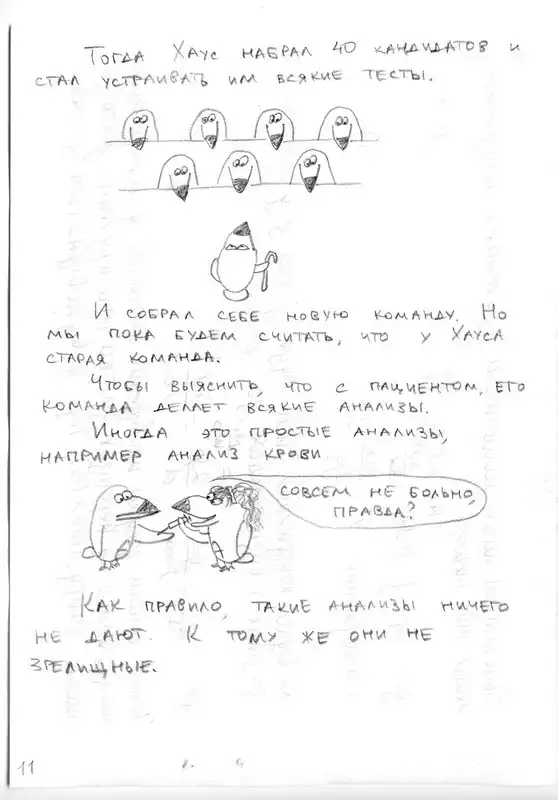 Тогда Хаус набрал 40 кандидатов и
стал устраивать им всякие тесты.
И собрал себе новую команду. Но
мы пока будем считать, что у Хауса
старая команда.
Чтобы выяснить, что с пациентом, его
команда делает всякие анализы.
Иногда это простые анализы,
например анализ крови
Совсем не больно,
правда?
Как правило, такие анализы ничего
не дают. К тому же они не
зрелищные.
11